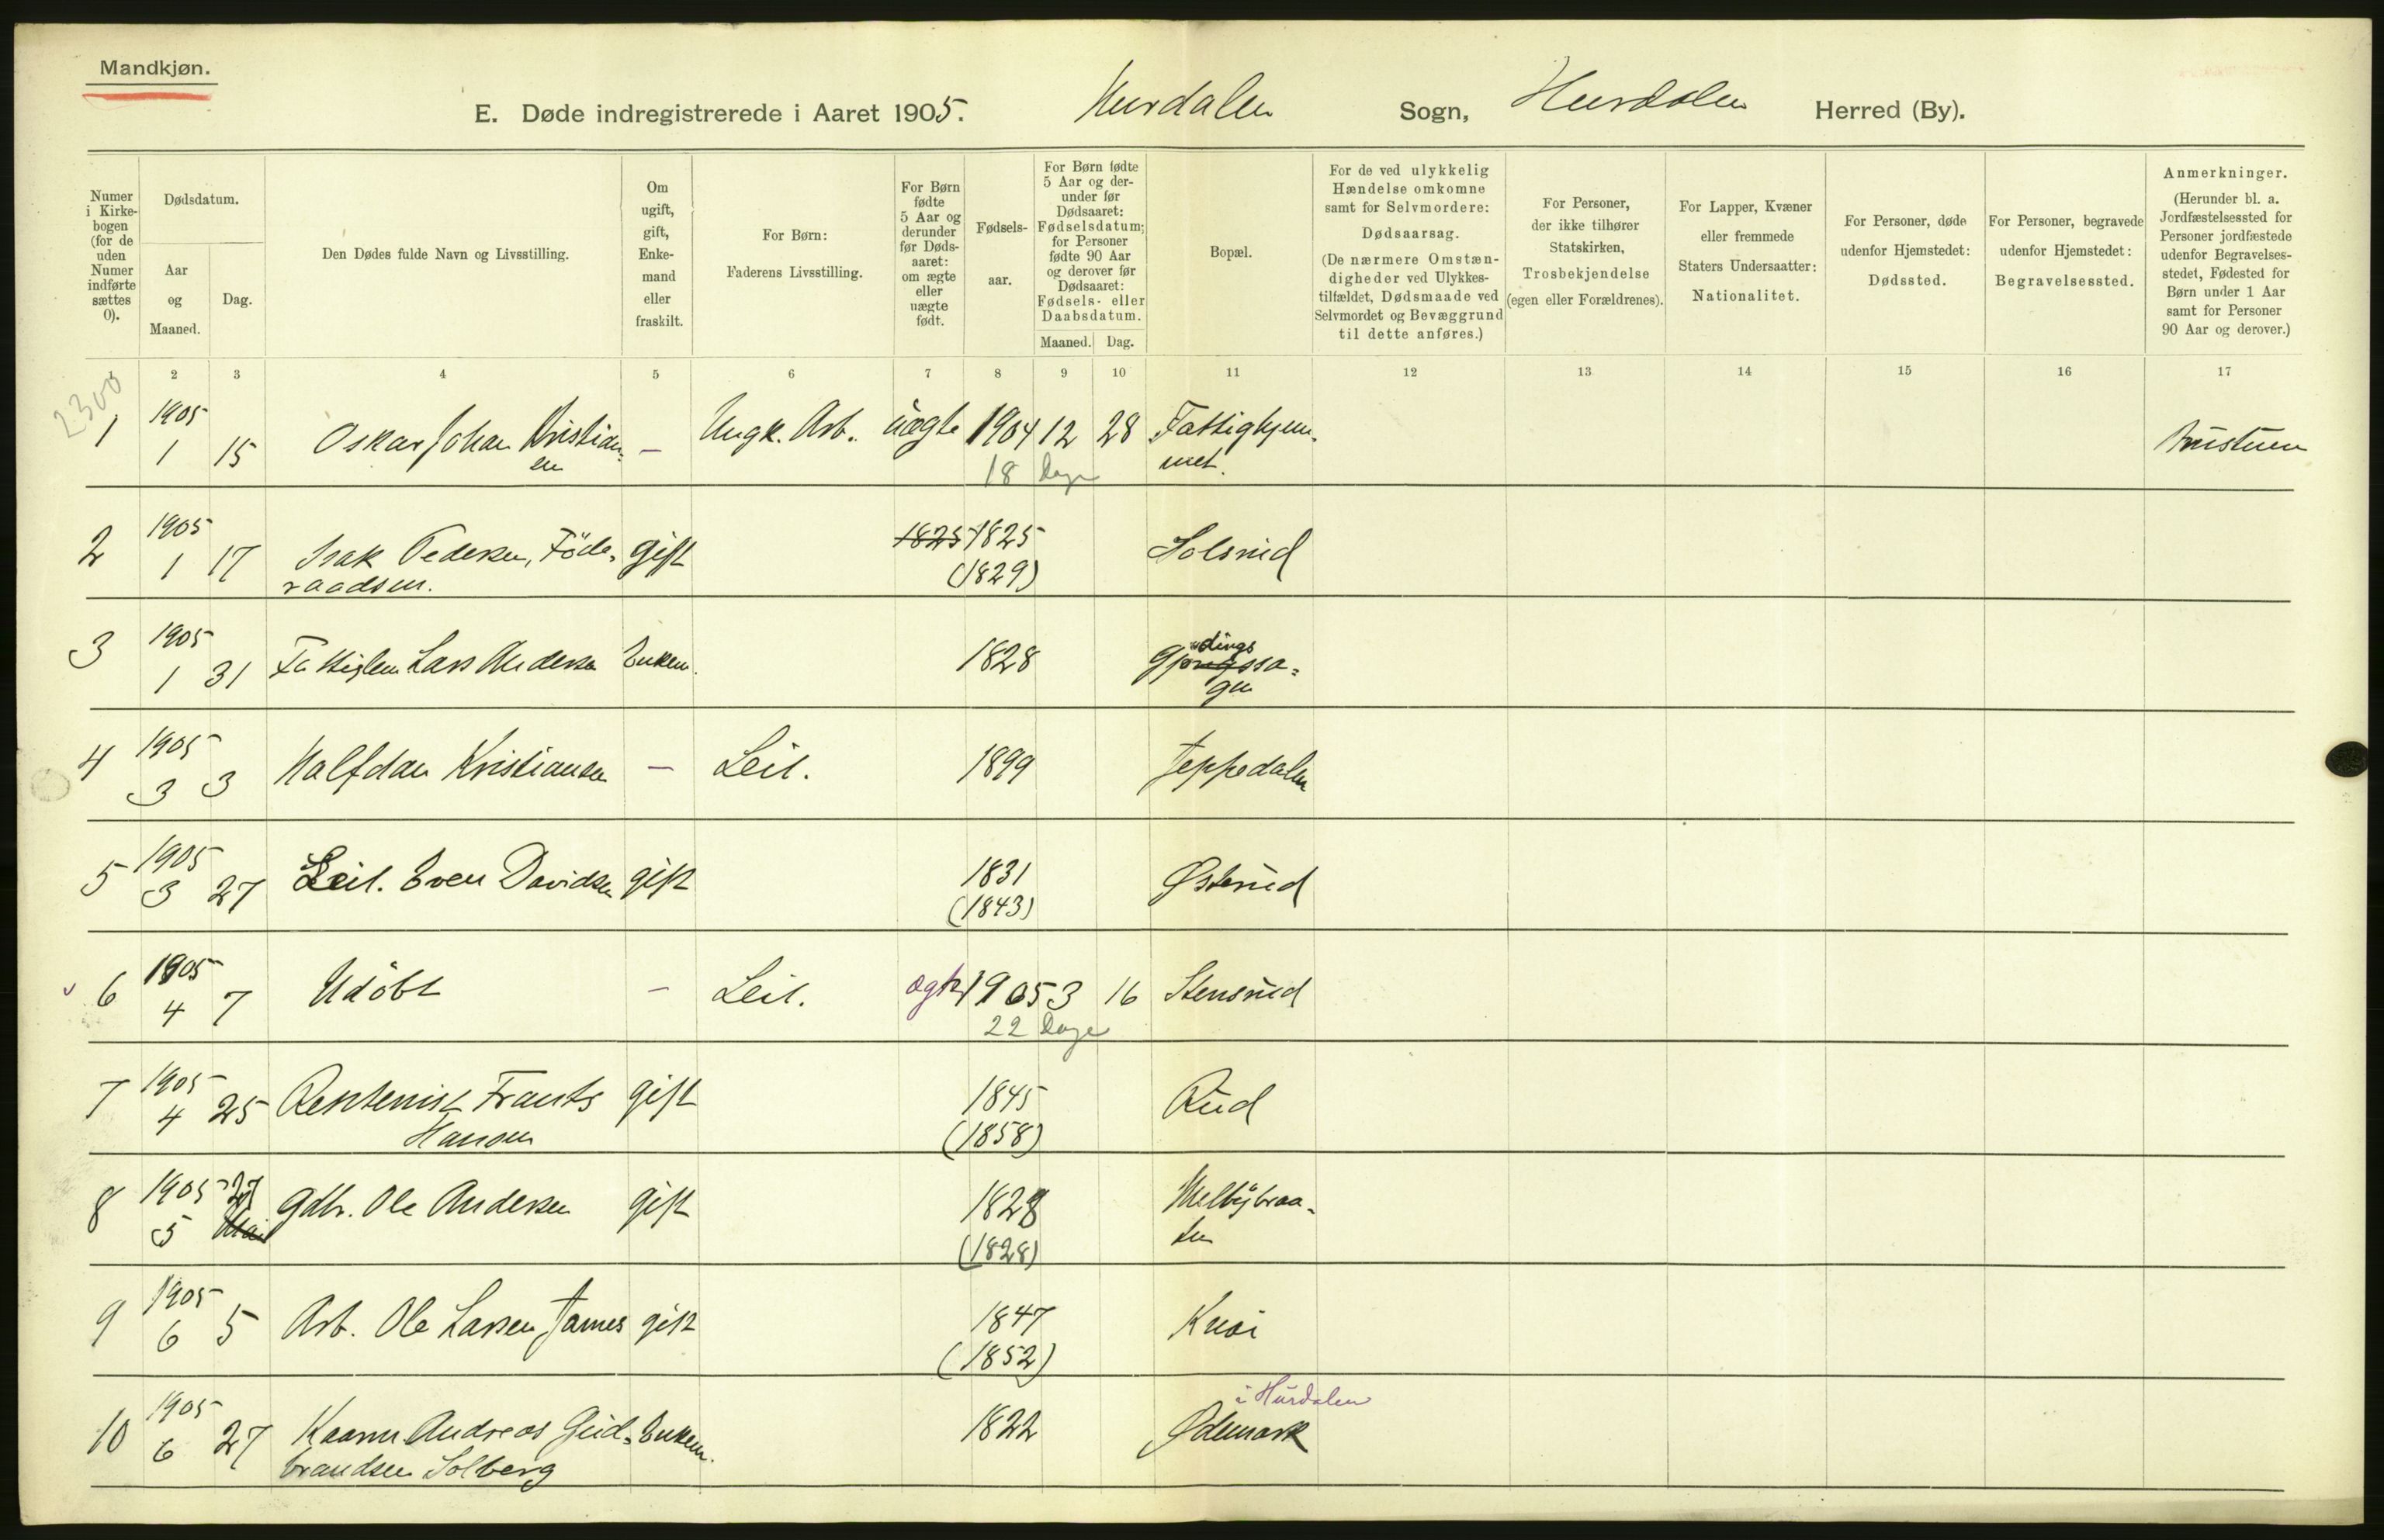 Mandkjøn.
E. Døde indregistrerede i Aaret 1905. Hurdalen Sogn, Hurdalen Herred (By).
Numer i Kirkebogen (for de uden Numer indførte sættes 0).
Dødsdatum.
Aar og Maaned.
Dag.
Den Dødes fulde Navn og Livsstilling.
Om ugift, gift, Enkemand eller fraskilt.
For Børn:
Faderens Livsstilling.
For Børn fødte 5 Aar og derunder før Dødsaaret: om ægte eller uægte født.
Fødselsaar.
For Børn fødte 5 Aar og derunder før Dødsaaret: Fødselsdatum; for Personer fødte 90 Aar og derover før Dødsaaret: Fødsels- eller Daabsdatum.
Maaned. Dag.
Bopæl.
For de ved ulykkelig Hændelse omkomne samt for Selvmordere: Dødsaarsag.
(De nærmere Omstændigheder ved Ulykkestilfældet, Dødsmaade ved Selvmordet og Bevæggrund til dette anføres.)
For Personer, der ikke tilhører Statskirken, Trosbekjendelse (egen eller Forældrenes).
For Lapper, Kvæner eller fremmede Staters Undersaatter: Nationalitet.
For Personer, døde udenfor Hjemstedet: Dødssted.
For Personer, begravede udenfor Hjemstedet: Begravelsessted.
Anmerkninger.
(Herunder bl. a. Jordfæstelsessted for Personer jordfæstede udenfor Begravelsesstedet, Fødested for Børn under 1 Aar samt for Personer 90 Aar og derover.)
2 3 4 5 6 7 8 9 10 11 12 13 14 15 16 17
2300
1 1905 1 15 Oskar Johan Kristian= — Ungk. Arb. uægte 1904 12 28 Fattighjem=
en 18 Dage met.
2 1905 1 17 Isak Pedersen, Føde= gift 1825 1825 Solsrud
raadsm. (1829)
3 1905 1 31 Fattiglem Lars Andersen Enkem. 1828 Gjøndingssa=
gen
4 1905 3 3 Halfdan Kristiansen — Leil. 1899 Jeppedalen
5 1905 3 27 Leil. Even Davidsen gift 1831 Østerud
(1843)
6 1905 4 7 Udøbt — Leil. ægte 1905 3 16 Stensrud
22 Dage
7 1905 4 25 Rentenist Frants gift 1845 Rud
Hansen (1858)
8 1905 5 27 Gdbr. Ole Andersen gift 1828 Melbybraa=
(1828) ten
9 1905 6 5 Arb. Ole Larsen James gift 1847 Knai
(1852)
i Hurdalen
10 1905 6 27 Kaarm. Andreas Gud= Enkem. 1822 Ødemark
brandsen Solberg